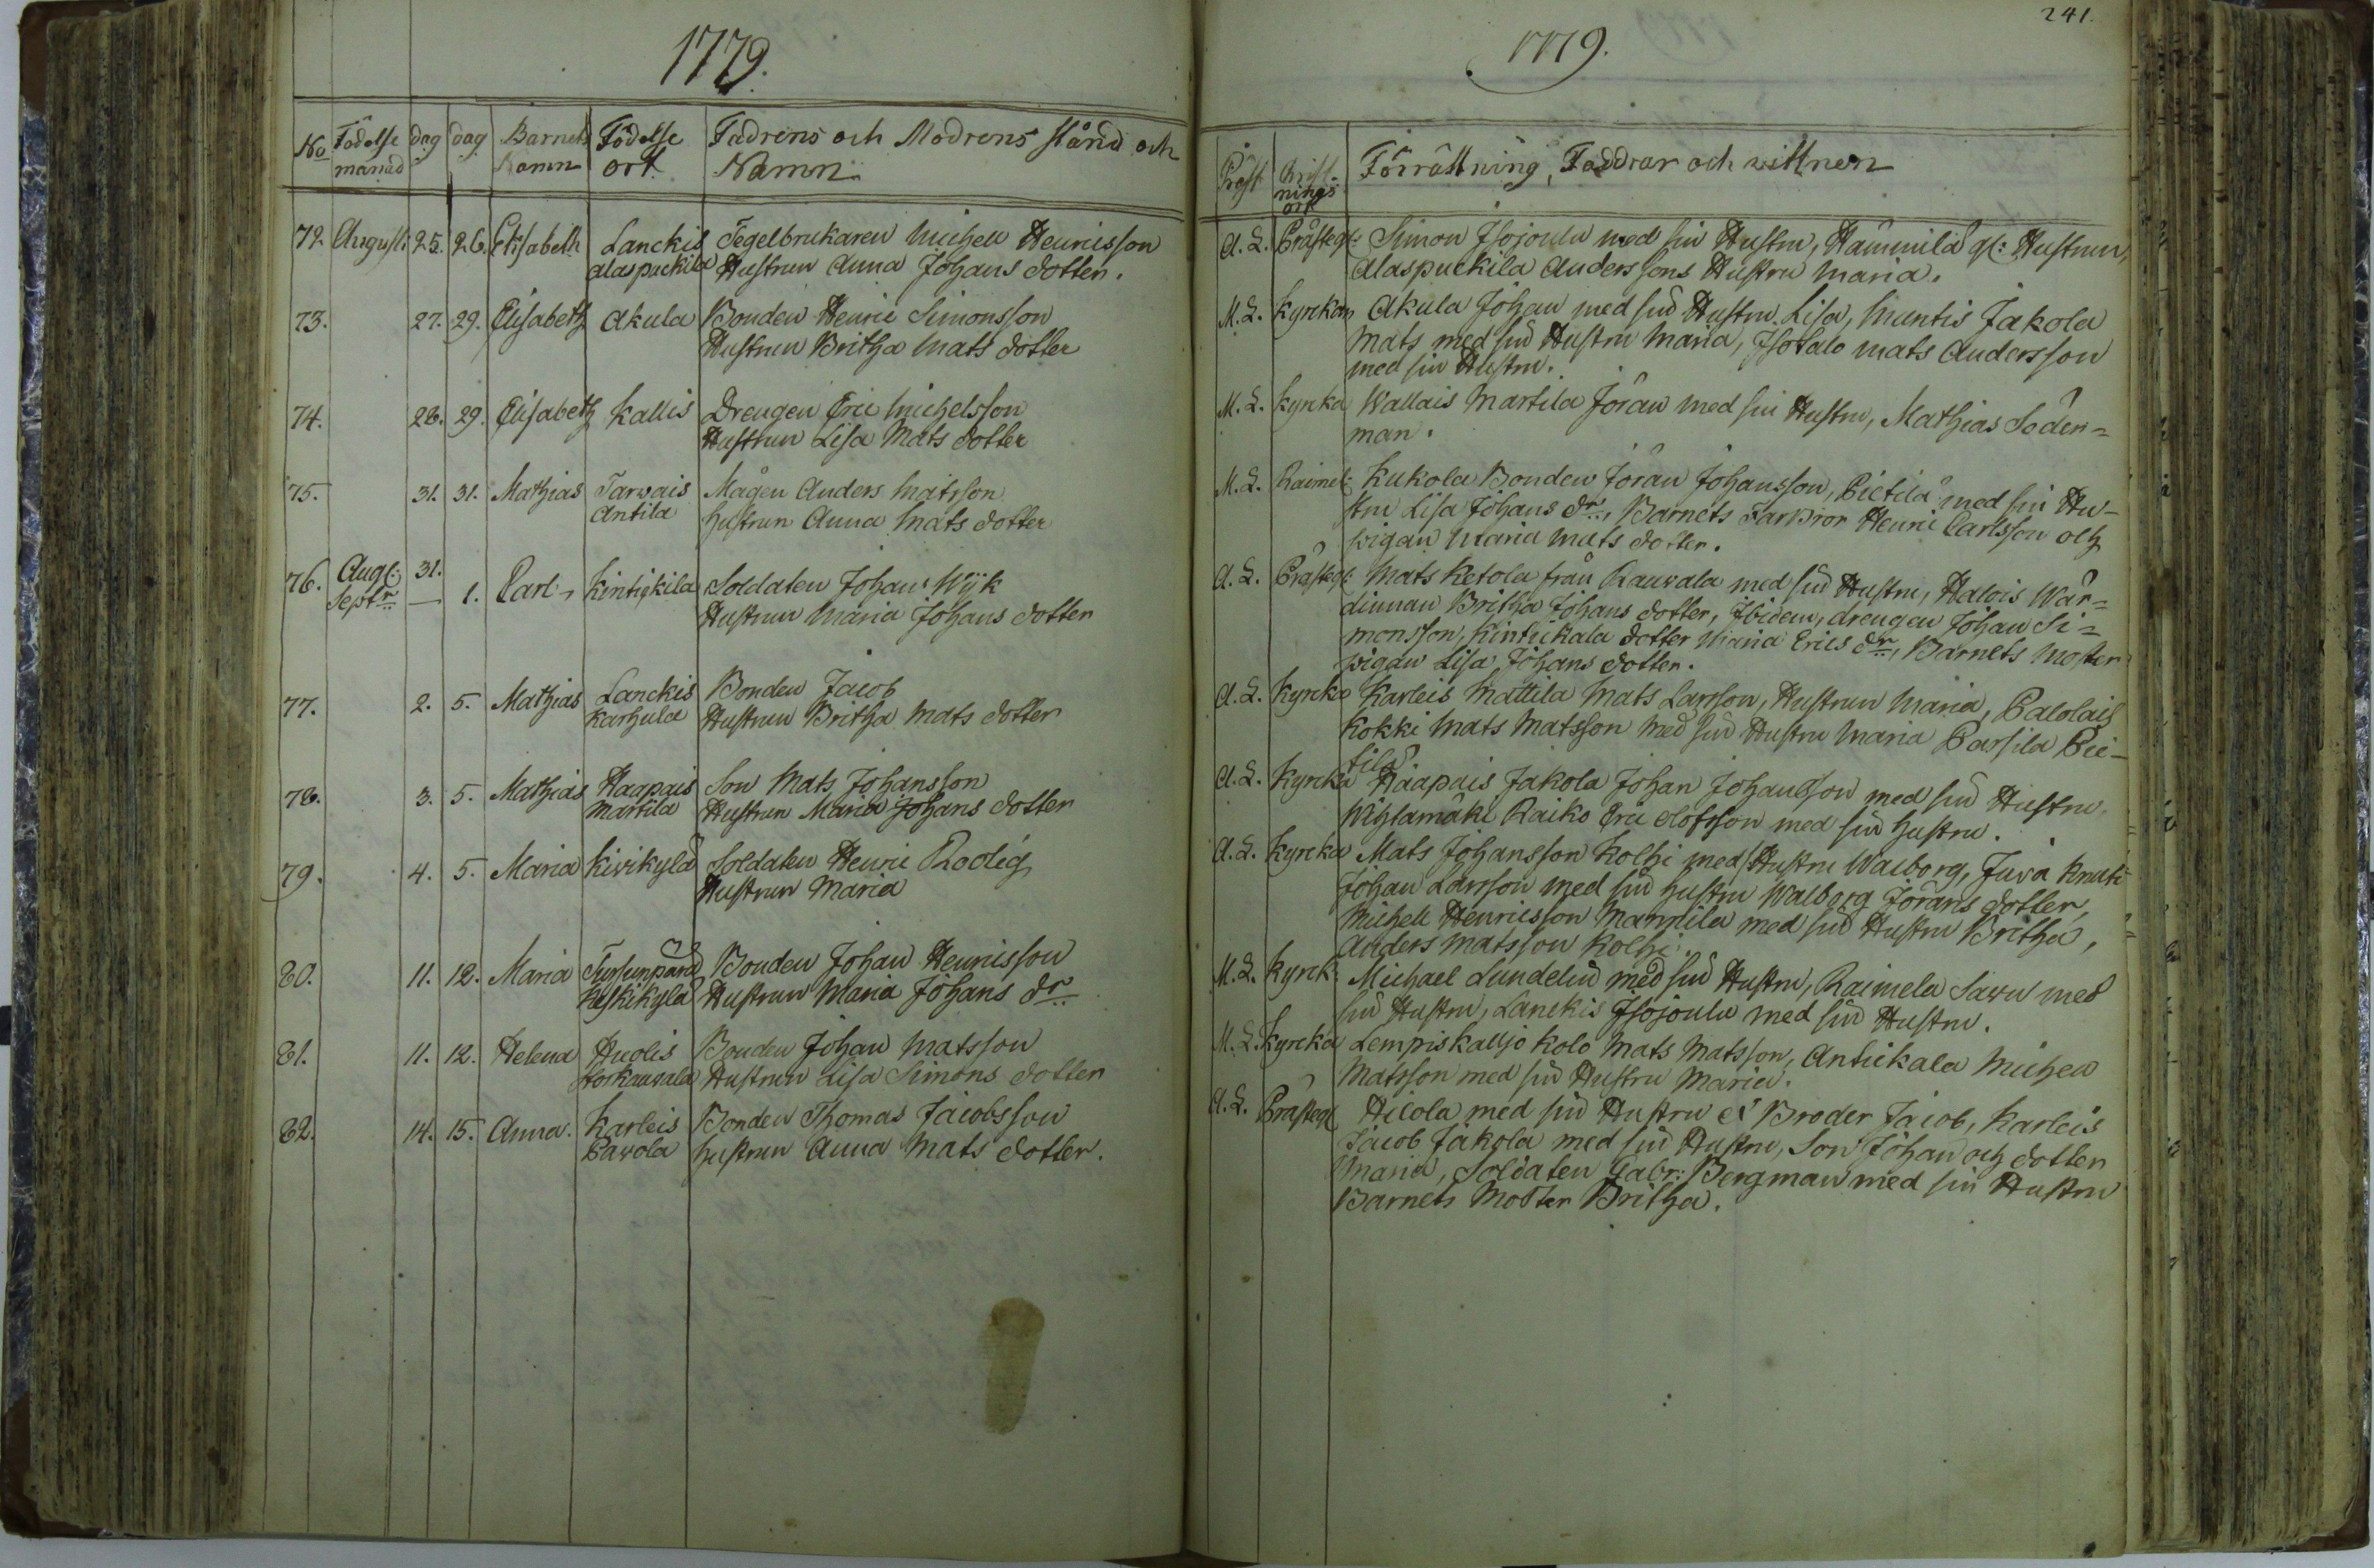 1779.
No Födelse månad dag dag Barnets Namn Födelse ort Fadrens och Modrens stånd och Namn
72 August: 25. 26. Elisabeth Lanckis Tegelbrukaren Michell Henricsson
alaspuckila Hustrun Anna Johans dotter.
73. 27. 29. Elisabeth Akula Bonden Henric Simonsson
Hustrun Britha Mats dotter
74. 28. 29. Elisabeth Kallis Drengen Eric Michelsson
Hustrun Lisa Mats dotter
75. 31. 31. Mathias Tarvais Mågen Anders Matsson
Antila hustrun Anna Mats dotter
76. Aug: 31.
Septr — 1. Carl Kintikkila Soldaten Johan Wijk
Hustrun Maria Johans dotter
77. 2. 5. Mathias Lanckis Bonden Jacob
Karhula Hustrun Britha Mats dotter
78. 3. 5. Mathias Haapais Son Mats Johansson
Martila Hustrun Maria Johans dotter
79. 4. 5. Maria Kivikylä Soldaten Henric Rodig
Hustrun Maria
80. 11. 12. Maria Bonden Johan Henricsson
Keskikylä Hustrun Maria Johans dr
81. 11. 12. Helena Huolis Bonden Johan Matsson
Storkauvala Hustrun Lisa Simons dotter
82. 14. 15. Anna. Karleis Bonden Thomas Jacobsson
Pavola hustrun Anna Mats dotter.
241.
1779.
Präst Christnings ort Förrättning, Faddrar och wittnen
A. L. Prästeg: Simon Isojoulu med sin Hustru, Hämmilä gl: Hustrun,
Alaspuckila Anderssons Hustru Maria.
M. L. Kyrckan Akula Johan med sin Hustru Lisa, Muntis Jakola
Mats med sin Hustru Maria, Isotalo Mats Andersson
med sin Hustru.
M. L. Kyrcka Wallais Martila Jöran med sin Hustru, Mathias Söder=
man.
M. L. Raimel: Kukola Bonden Jöran Johansson, Pietilä med sin Hu-
stru Lisa Johans dr, Barnets Farbror Henric Carlsson och
pigan Maria Mats dotter.
A. L. Prästeg: Mats Ketola från Rauvala med sin Hustru, Halois Wär=
dinnan Britha Johans dotter, Ibidem, drengen Johan Si=
monsson, Kintickala dotter Maria Erics dr, Barnets Moster
pigan Lisa Johans dotter.
A. L. Kyrcka Karleis Mattila Mats Larsson, Hustrun Maria, Palolais
Kokki Mats Matsson med sin Hustru Maria Passila Pie-
tilä
A. L. Kyrcka Haapais Jakola Johan Johansson med sin Hustru,
Wihlamäki Raiko Eric Olofsson med sin hustru.
A. L. Kyrcka Mats Johansson Kolhi med Hustru Walborg, Juva Knuti
Johan Larsson med sin hustru Walborg Jörans dotter,
Michell Henricsson Mannila med sin Hustru Britha,
Anders Matsson Kolhi.
M. L. Kyrck: Michael Lundelin med sin Hustru, Raimela Savu med
sin Hustru, Lanckis Isojoulu med sin Hustru.
M. L. Kyrcka Lempis Kallio Kolo Mats Matsson, Antickala Michell
Matsson med sin Hustru Maria.
A. L. Prästeg Hicola med sin Hustru et Broder Jacob, Karleis
Jacob Jakola med sin Hustru, Son Johan och dotter
Maria, Soldaten Gabr: Bergman med sin Hustru
Barnets Moster Britha.